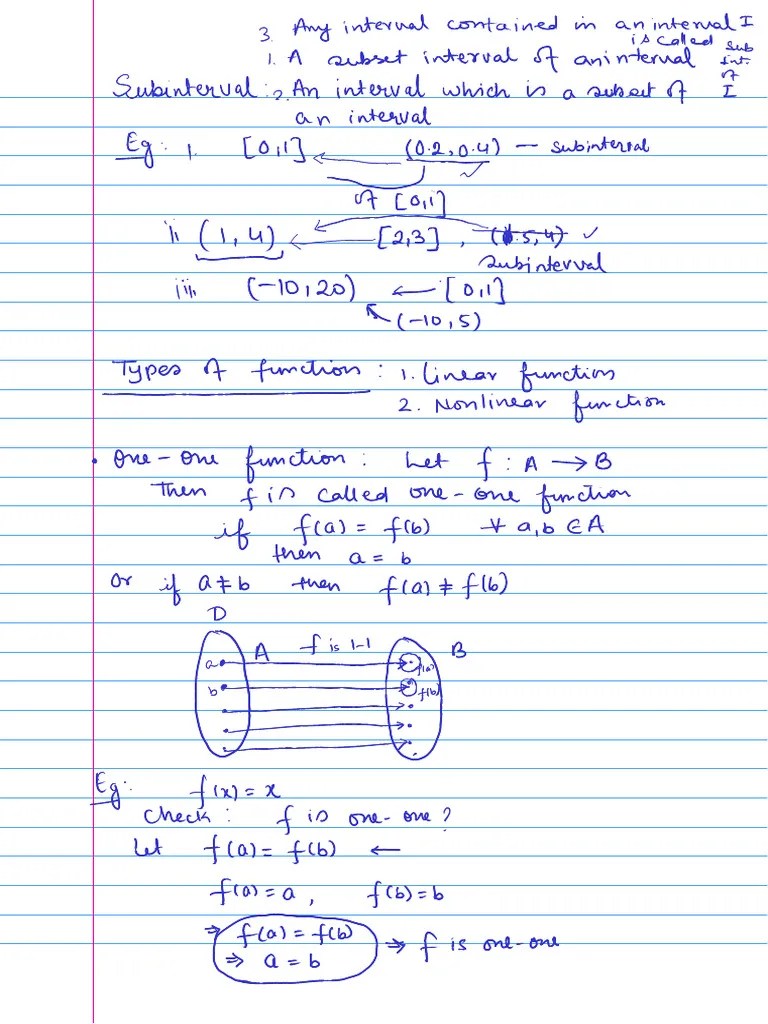 3. Any interval contained in an interval I
is called sub int. of I
1. A subset interval of an interval
Subinterval: 2. An interval which is a subset of
an interval
Eg: 1. [0,1] ← (0.2, 0.4) — subinterval
of [0,1]
ii, (1, 4) ← [2,3] , (1.5, 4) ✓
subinterval
iii, (-10, 20) ← [0,1]
(-10, 5)
Types of function: 1. Linear function
2. Nonlinear function
• One-one function: Let f : A → B
Then f is called one-one function
if f(a) = f(b) ∀ a, b ∈ A
then a = b
or if a ≠ b then f(a) ≠ f(b)
D
A f is 1-1 B
a f(a)
b f(b)
Eg: f(x) = x
Check: f is one-one?
Let f(a) = f(b) ←
f(a) = a , f(b) = b
⇒ f(a) = f(b)
⇒ a = b ⇒ f is one-one